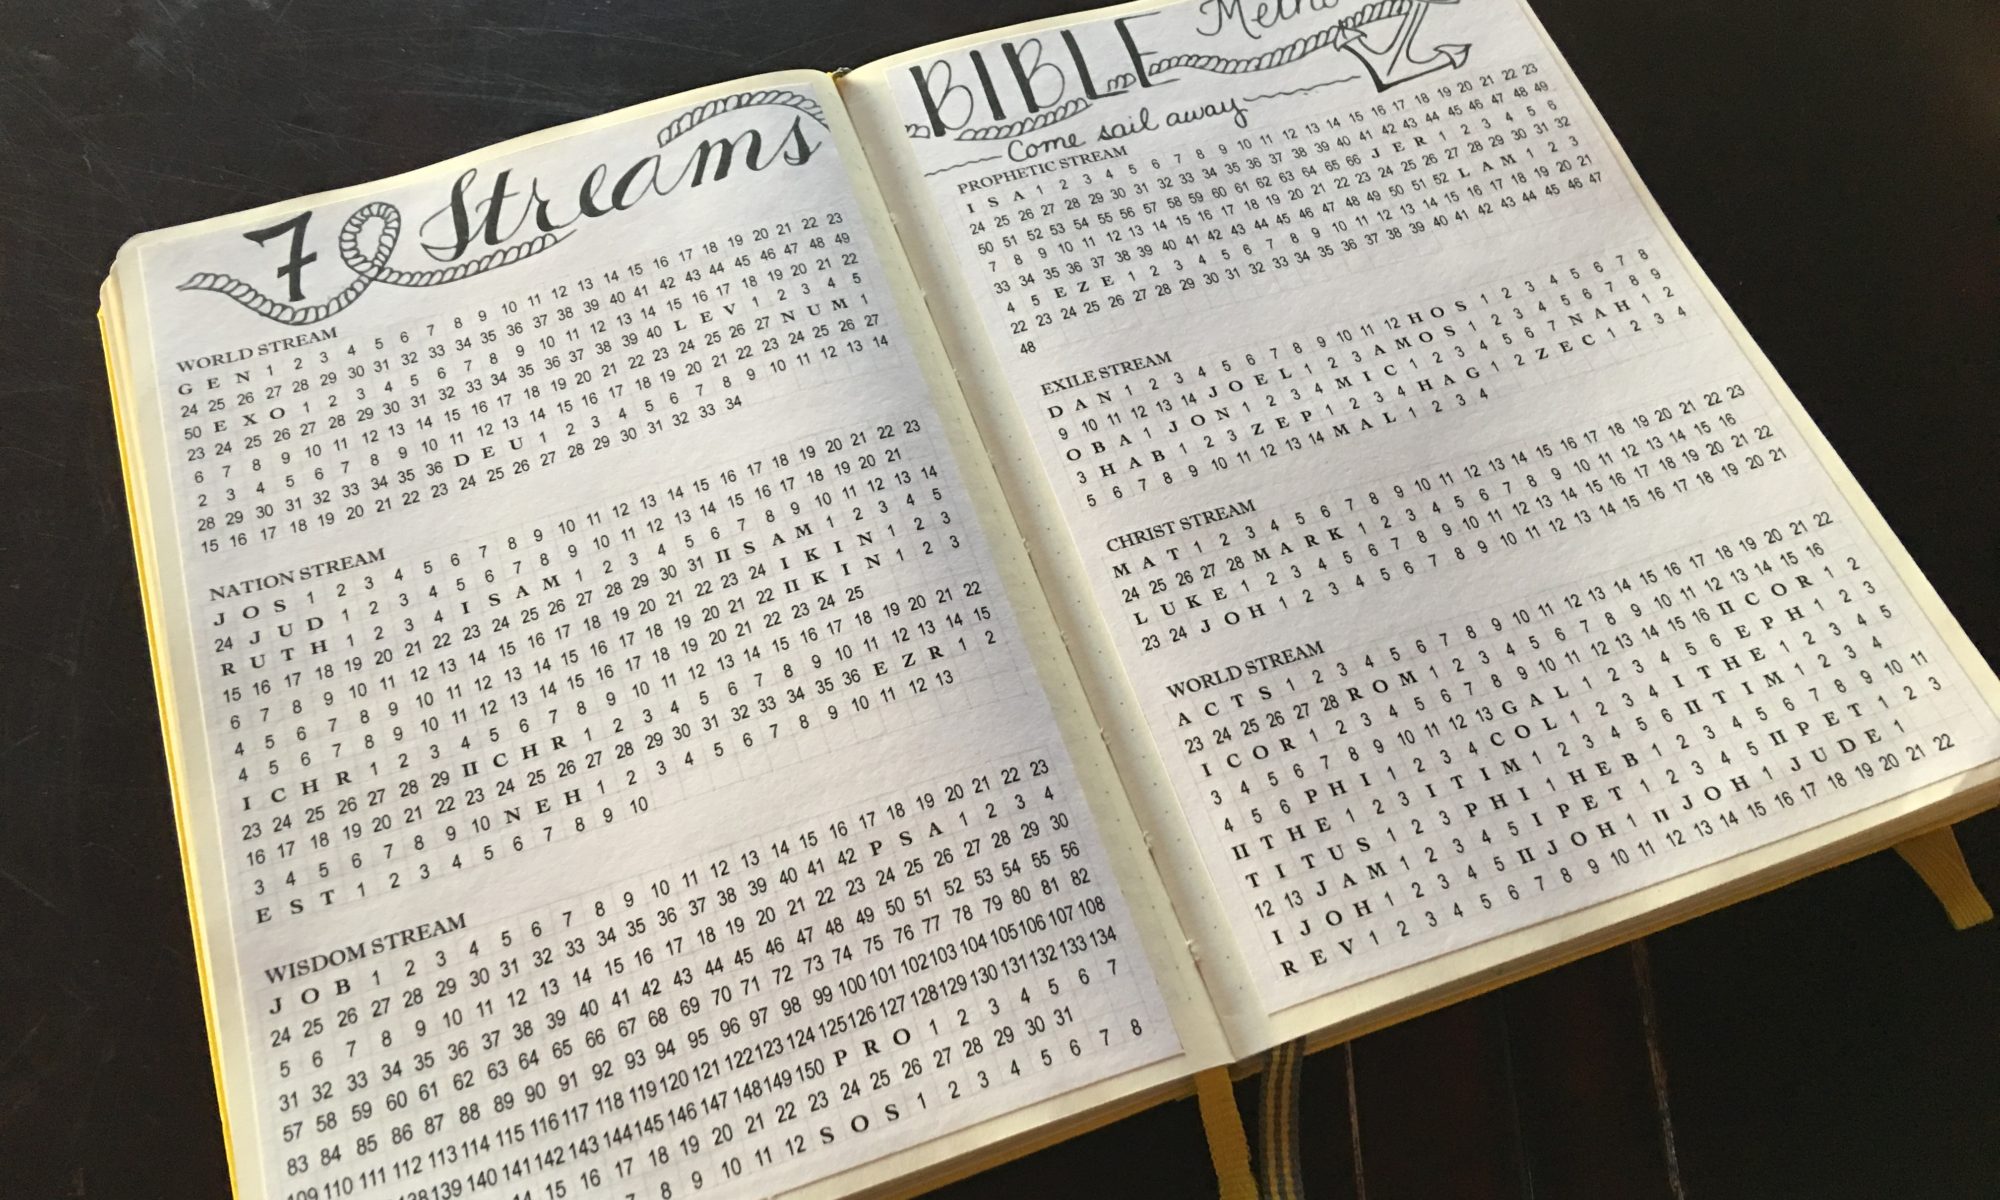 7 Streams
WORLD STREAM
G E N 1 2 3 4 5 6 7 8 9 10 11 12 13 14 15 16 17 18 19 20 21 22 23
24 25 26 27 28 29 30 31 32 33 34 35 36 37 38 39 40 41 42 43 44 45 46 47 48 49
50 E X O 1 2 3 4 5 6 7 8 9 10 11 12 13 14 15 16 17 18 19 20 21 22
23 24 25 26 27 28 29 30 31 32 33 34 35 36 37 38 39 40 L E V 1 2 3 4 5
6 7 8 9 10 11 12 13 14 15 16 17 18 19 20 21 22 23 24 25 26 27 N U M 1
2 3 4 5 6 7 8 9 10 11 12 13 14 15 16 17 18 19 20 21 22 23 24 25 26 27
28 29 30 31 32 33 34 35 36 D E U 1 2 3 4 5 6 7 8 9 10 11 12 13 14
15 16 17 18 19 20 21 22 23 24 25 26 27 28 29 30 31 32 33 34
NATION STREAM
J O S 1 2 3 4 5 6 7 8 9 10 11 12 13 14 15 16 17 18 19 20 21 22 23
24 J U D 1 2 3 4 5 6 7 8 9 10 11 12 13 14 15 16 17 18 19 20 21
R U T H 1 2 3 4 I S A M 1 2 3 4 5 6 7 8 9 10 11 12 13 14
15 16 17 18 19 20 21 22 23 24 25 26 27 28 29 30 31 II S A M 1 2 3 4 5
6 7 8 9 10 11 12 13 14 15 16 17 18 19 20 21 22 23 24 I K I N 1 2 3
4 5 6 7 8 9 10 11 12 13 14 15 16 17 18 19 20 21 22 II K I N 1 2 3
4 5 6 7 8 9 10 11 12 13 14 15 16 17 18 19 20 21 22 23 24 25
I C H R 1 2 3 4 5 6 7 8 9 10 11 12 13 14 15 16 17 18 19 20 21 22
23 24 25 26 27 28 29 II C H R 1 2 3 4 5 6 7 8 9 10 11 12 13 14 15
16 17 18 19 20 21 22 23 24 25 26 27 28 29 30 31 32 33 34 35 36 E Z R 1 2
3 4 5 6 7 8 9 10 N E H 1 2 3 4 5 6 7 8 9 10 11 12 13
E S T 1 2 3 4 5 6 7 8 9 10
WISDOM STREAM
J O B 1 2 3 4 5 6 7 8 9 10 11 12 13 14 15 16 17 18 19 20 21 22 23
24 25 26 27 28 29 30 31 32 33 34 35 36 37 38 39 40 41 42 P S A 1 2 3 4
5 6 7 8 9 10 11 12 13 14 15 16 17 18 19 20 21 22 23 24 25 26 27 28 29 30
31 32 33 34 35 36 37 38 39 40 41 42 43 44 45 46 47 48 49 50 51 52 53 54 55 56
57 58 59 60 61 62 63 64 65 66 67 68 69 70 71 72 73 74 75 76 77 78 79 80 81 82
83 84 85 86 87 88 89 90 91 92 93 94 95 96 97 98 99 100 101 102 103 104 105 106 107 108
109 110 111 112 113 114 115 116 117 118 119 120 121 122 123 124 125 126 127 128 129 130 131 132 133 134
138 139 140 141 142 143 144 145 146 147 148 149 150 P R O 1 2 3 4 5 6 7
14 15 16 17 18 19 20 21 22 23 24 25 26 27 28 29 30 31
8 9 10 11 12 S O S 1 2 3 4 5 6 7 8
BIBLE
Come sail away
PROPHETIC STREAM
I S A 1 2 3 4 5 6 7 8 9 10 11 12 13 14 15 16 17 18 19 20 21 22 23
24 25 26 27 28 29 30 31 32 33 34 35 36 37 38 39 40 41 42 43 44 45 46 47 48 49
50 51 52 53 54 55 56 57 58 59 60 61 62 63 64 65 66 J E R 1 2 3 4 5 6
7 8 9 10 11 12 13 14 15 16 17 18 19 20 21 22 23 24 25 26 27 28 29 30 31 32
33 34 35 36 37 38 39 40 41 42 43 44 45 46 47 48 49 50 51 52 L A M 1 2 3
4 5 E Z E 1 2 3 4 5 6 7 8 9 10 11 12 13 14 15 16 17 18 19 20 21
22 23 24 25 26 27 28 29 30 31 32 33 34 35 36 37 38 39 40 41 42 43 44 45 46 47
48
EXILE STREAM
D A N 1 2 3 4 5 6 7 8 9 10 11 12 H O S 1 2 3 4 5 6 7 8
9 10 11 12 13 14 J O E L 1 2 3 A M O S 1 2 3 4 5 6 7 8 9
O B A 1 J O N 1 2 3 4 M I C 1 2 3 4 5 6 7 N A H 1 2
3 H A B 1 2 3 Z E P 1 2 3 4 H A G 1 2 Z E C 1 2 3 4
5 6 7 8 9 10 11 12 13 14 M A L 1 2 3 4
CHRIST STREAM
M A T 1 2 3 4 5 6 7 8 9 10 11 12 13 14 15 16 17 18 19 20 21 22 23
24 25 26 27 28 M A R K 1 2 3 4 5 6 7 8 9 10 11 12 13 14 15 16
L U K E 1 2 3 4 5 6 7 8 9 10 11 12 13 14 15 16 17 18 19 20 21 22
23 24 J O H 1 2 3 4 5 6 7 8 9 10 11 12 13 14 15 16 17 18 19 20 21
WORLD STREAM
A C T S 1 2 3 4 5 6 7 8 9 10 11 12 13 14 15 16 17 18 19 20 21 22
23 24 25 26 27 28 R O M 1 2 3 4 5 6 7 8 9 10 11 12 13 14 15 16
I C O R 1 2 3 4 5 6 7 8 9 10 11 12 13 14 15 16 II C O R 1 2
3 4 5 6 7 8 9 10 11 12 13 G A L 1 2 3 4 5 6 E P H 1 2 3
4 5 6 P H I 1 2 3 4 C O L 1 2 3 4 I T H E 1 2 3 4 5
II T H E 1 2 3 I T I M 1 2 3 4 5 6 II T I M 1 2 3 4
T I T U S 1 2 3 P H I 1 H E B 1 2 3 4 5 6 7 8 9 10 11
12 13 J A M 1 2 3 4 5 I P E T 1 2 3 4 5 II P E T 1 2 3
I J O H 1 2 3 4 5 II J O H 1 II J O H 1 J U D E 1
R E V 1 2 3 4 5 6 7 8 9 10 11 12 13 14 15 16 17 18 19 20 21 22